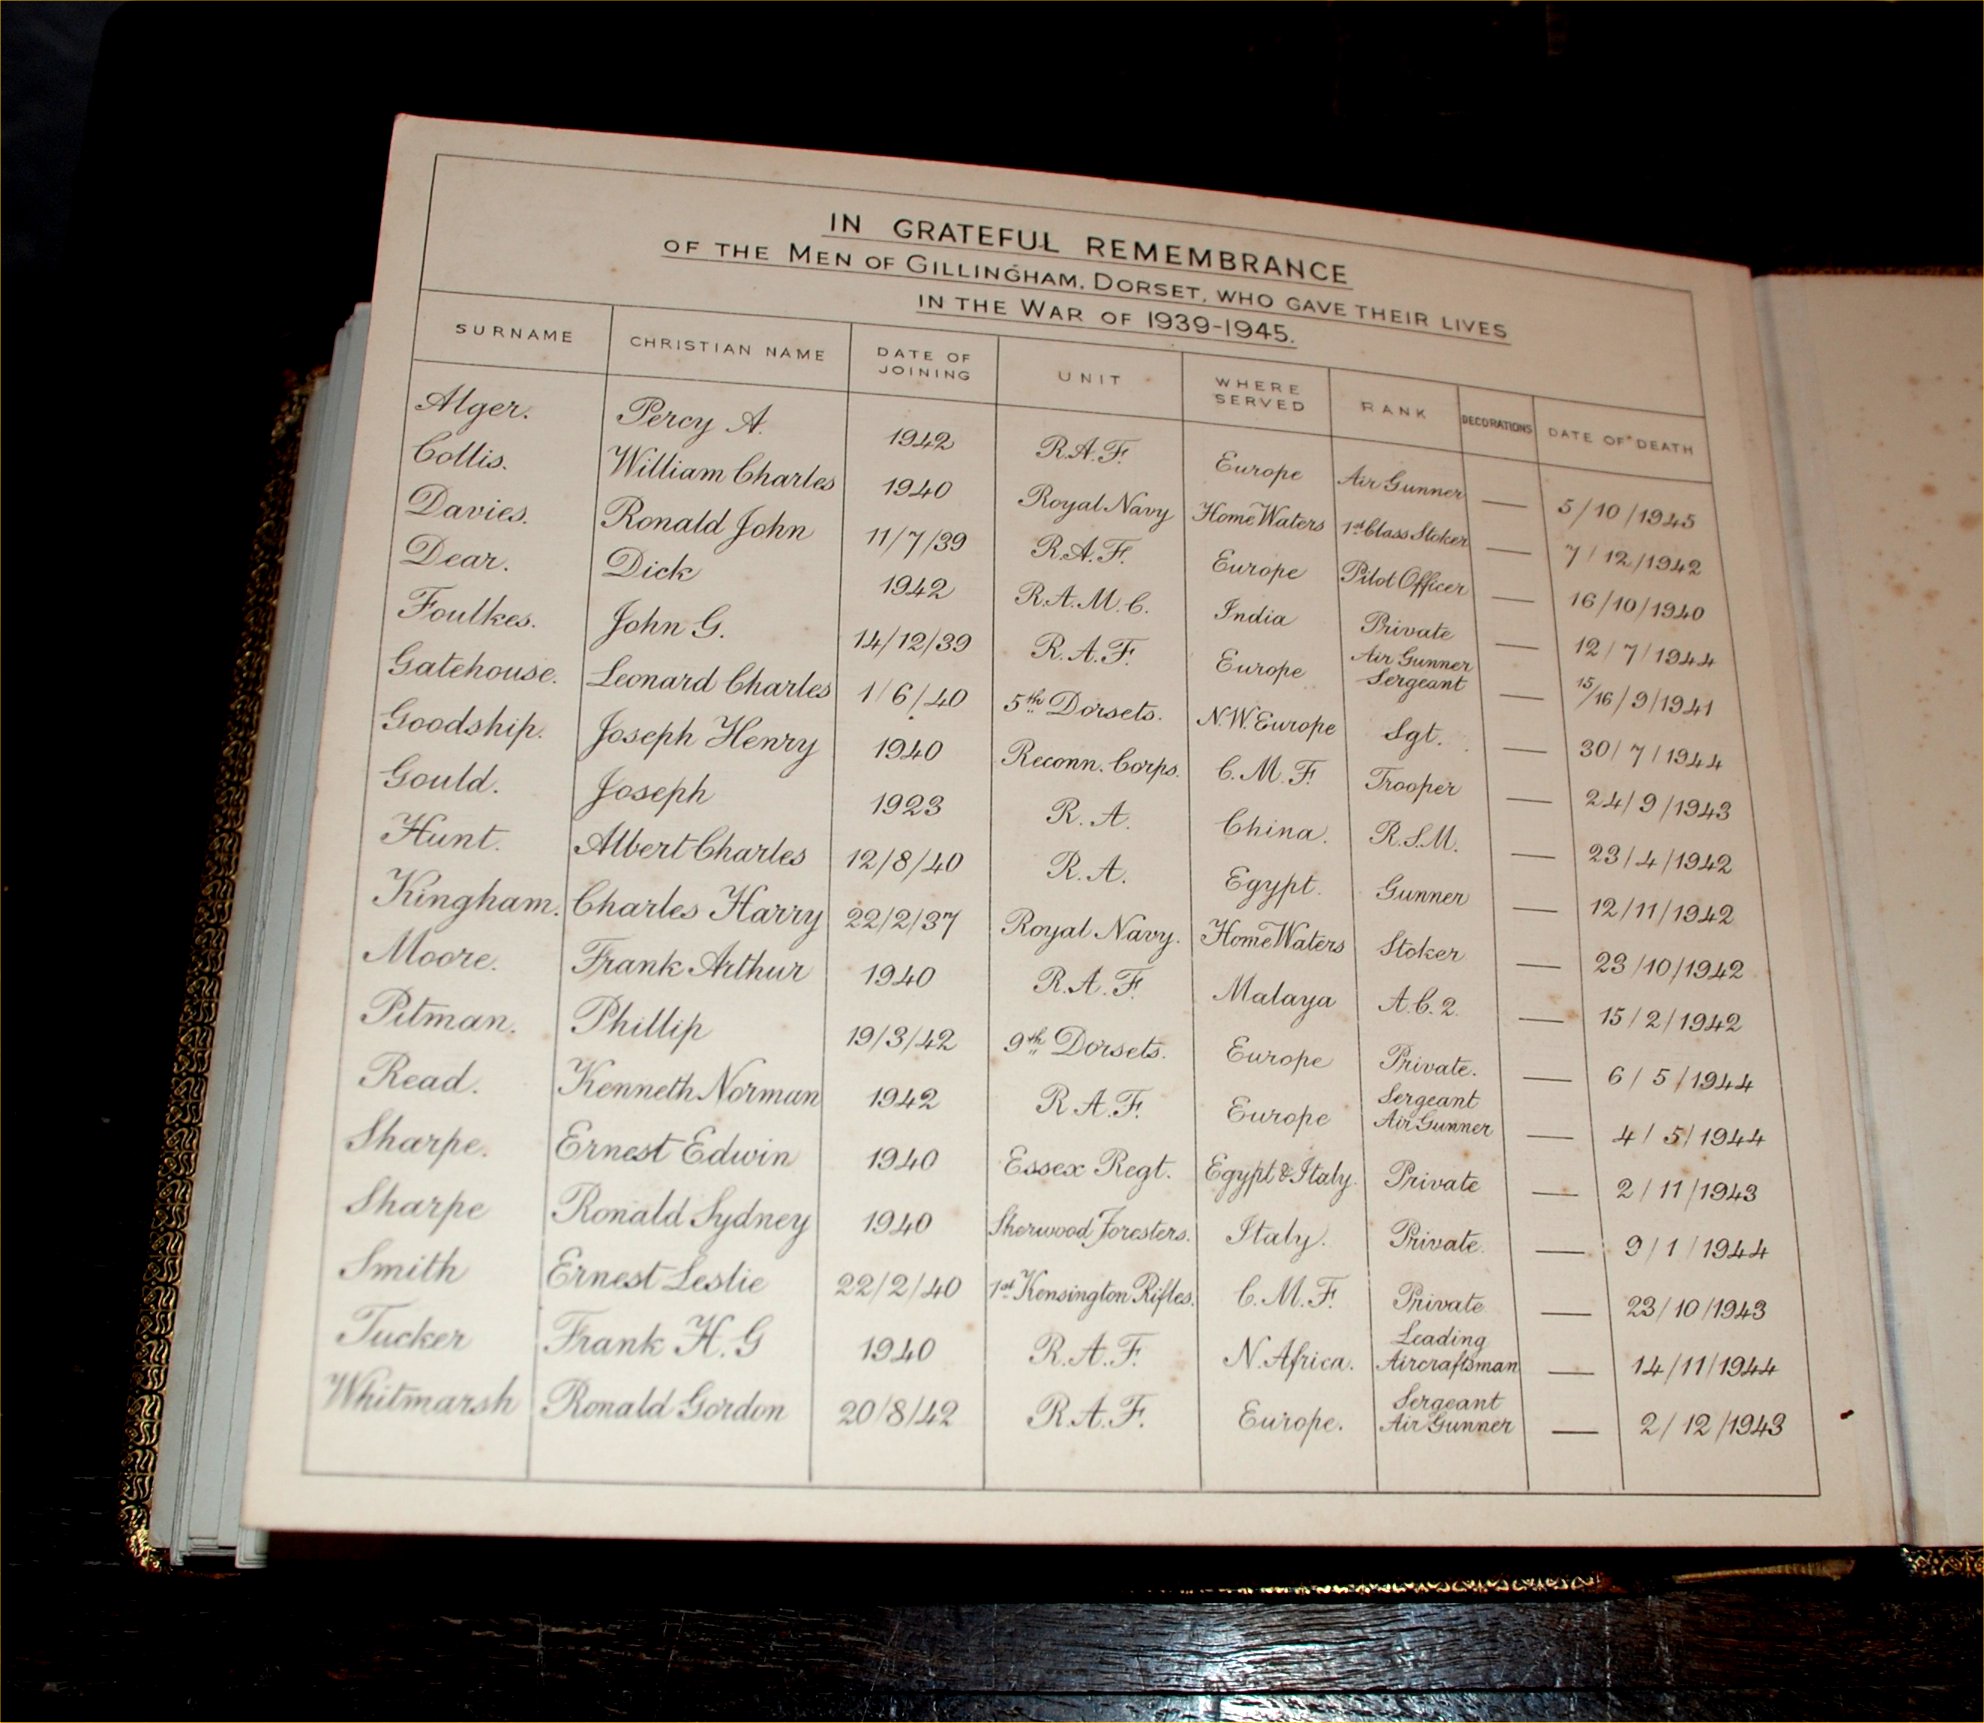 IN GRATEFUL REMEMBRANCE
OF THE MEN OF GILLINGHAM, DORSET, WHO GAVE THEIR LIVES
IN THE WAR OF 1939-1945.
SURNAME CHRISTIAN NAME DATE OF JOINING UNIT WHERE SERVED RANK DECORATIONS DATE OF DEATH
Alger. Percy A. 1942 R.A.F. Europe Air Gunner — 5/10/1945
Collis. William Charles 1940 Royal Navy Home Waters 1st Class Stoker — 7/12/1942
Davies. Ronald John 11/7/39 R.A.F. Europe Pilot Officer — 16/10/1940
Dear. Dick 1942 R.A.M.C. India Private — 12/7/1944
Foulkes. John G. 14/12/39 R.A.F. Europe Air Gunner Sergeant — 15/16/9/1941
Gatehouse. Leonard Charles 1/6/40 5th Dorsets. N.W. Europe Sgt. — 30/7/1944
Goodship. Joseph Henry 1940 Reconn. Corps. C.M.F. Trooper — 24/9/1943
Gould. Joseph 1923 R.A. China. R.S.M. — 23/4/1942
Hunt. Albert Charles 12/8/40 R.A. Egypt. Gunner — 12/11/1942
Kingham. Charles Harry 22/2/37 Royal Navy. Home Waters Stoker — 23/10/1942
Moore. Frank Arthur 1940 R.A.F. Malaya A.C.2. — 15/2/1942
Pitman. Phillip 19/3/42 9th Dorsets. Europe Private. — 6/5/1944
Read. Kenneth Norman 1942 R.A.F. Europe Sergeant Air Gunner — 4/5/1944
Sharpe. Ernest Edwin 1940 Essex Regt. Egypt & Italy. Private — 2/11/1943
Sharpe Ronald Sydney 1940 Sherwood Foresters. Italy. Private. — 9/1/1944
Smith Ernest Leslie 22/2/40 1st Kensington Rifles. C.M.F. Private — 23/10/1943
Tucker Frank H.G 1940 R.A.F. N. Africa. Leading Aircraftsman — 14/11/1944
Whitmarsh Ronald Gordon 20/8/42 R.A.F. Europe. Sergeant Air Gunner — 2/12/1943